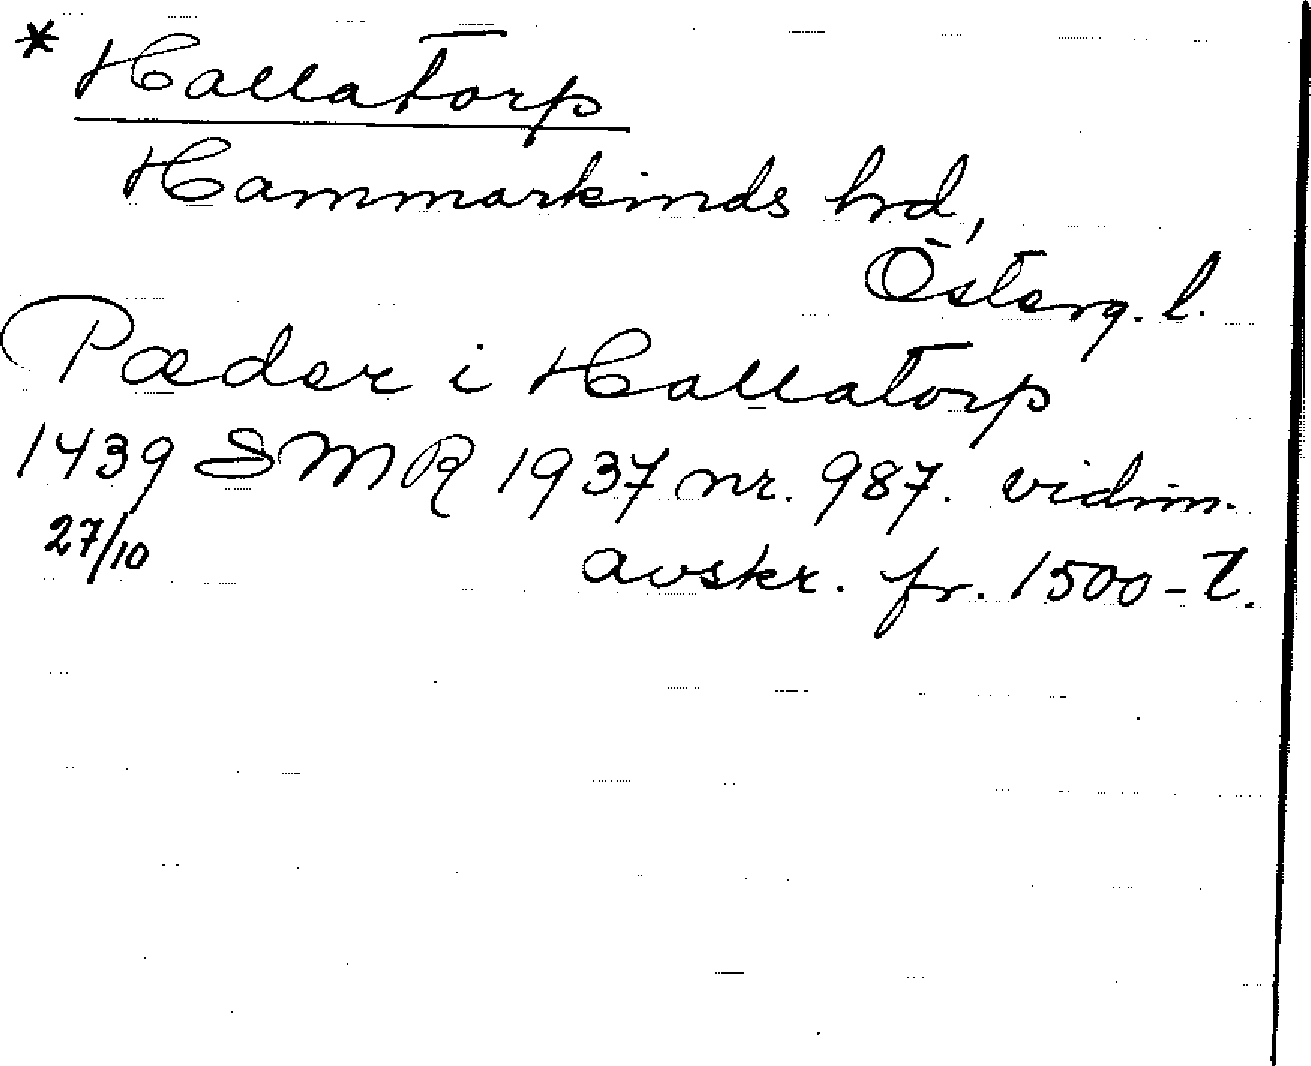 * Hallatorp
Hammarkinds hrd,
Österg. l.
Pæder i Hallatorp
1439 SMR 1937 nr. 987. vidim.
27/10 avskr. fr. 1500-t.